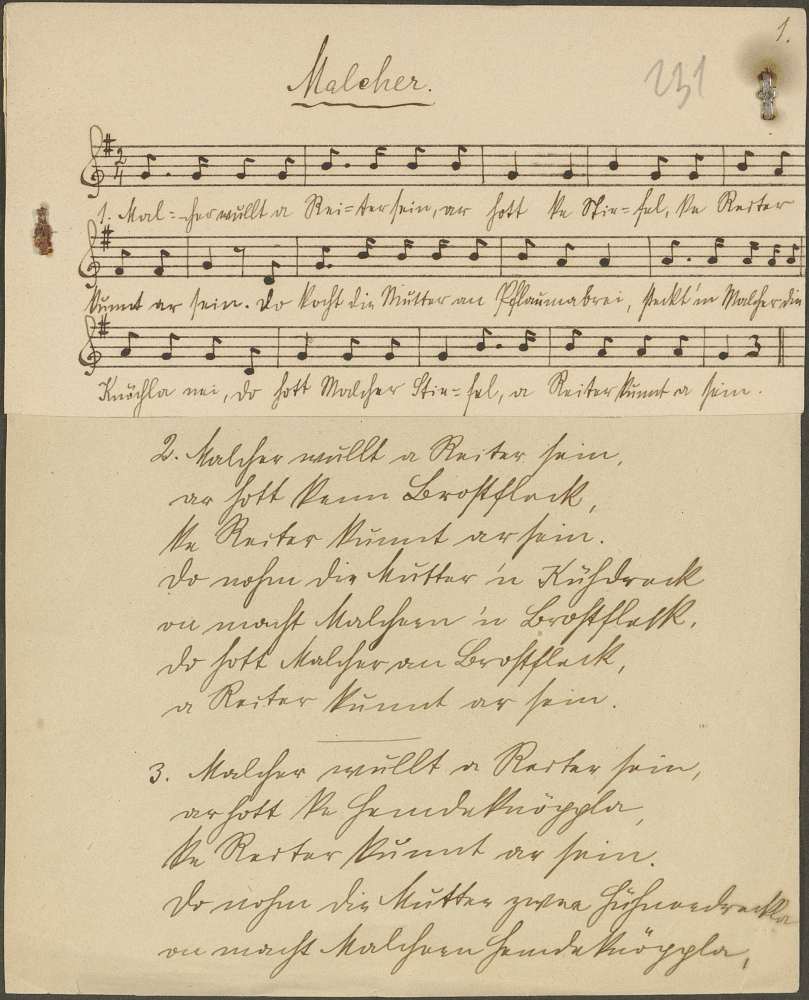 1.
Malcher.
231
2
4
1. Mal=cher wullt a Rei=ter sein, ar hott ke Stie=fel, ke Reiter
kunnt ar sein. Do kocht die Mutter an Pflaumabrei, steckt 'm Malcher die
Knöchla nei, do hott Malcher Stie=fel, a Reiter kunnt a sein.
2. Malcher wullt a Reiter sein,
ar hott kenn Brostfleck,
ke Reiter kunnt ar sein.
Do nohm die Mutter 'n Kühdreck
on macht Malchern 'n Brostfleck.
do hott Malcher an Brostfleck,
a Reiter kunnt ar sein.
3. Malcher wullt a Reiter sein,
ar hott ke Hemdeknöppla,
ke Reiter kunnt ar sein.
Do nohm die Mutter zwee Hühnerdreckla
on macht Malchern Hemdeknöppla,